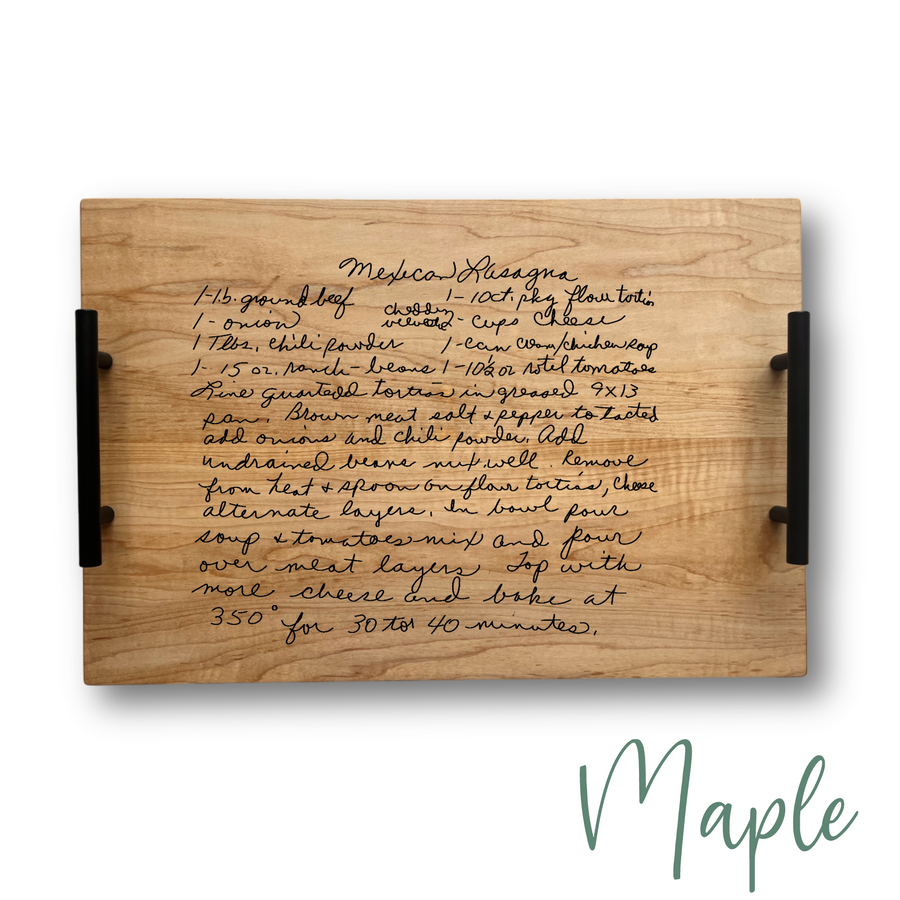 Mexican Lasagna
1-lb. ground beef 1-10ct. pkg flour tortias
1- onion cheddar velveeta 2- cups Cheese
1 Tlbs. chili powder 1-can cream/chicken soup
1- 15 oz. ranch-beans 1-10½ oz rotel tomatoes
Line quartedd tortias in greased 9x13
pan. Brown meat salt & pepper to tasted
add onions and chili powder. Add
undrained beans mix well. Remove
from heat & spoon on flour tortias, cheese
alternate layers. In bowl pour
soup & tomatoes mix and pour
over meat layers Top with
more cheese and bake at
350° for 30 to 40 minutes.
Maple